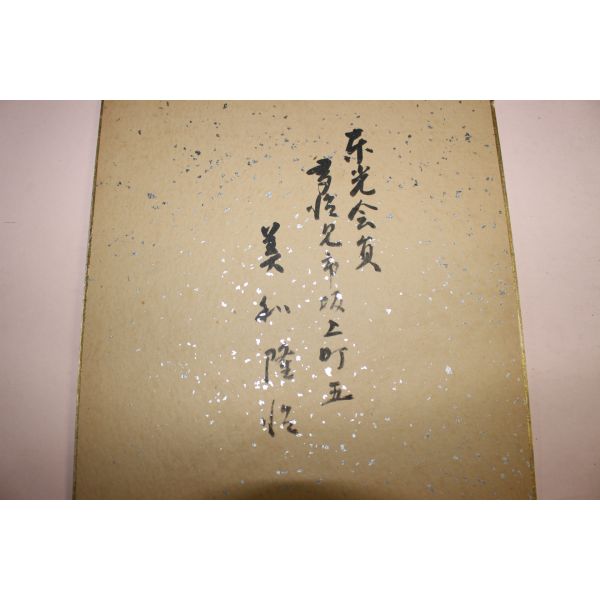 東光会員
多治見市坂上町五
美和隆治